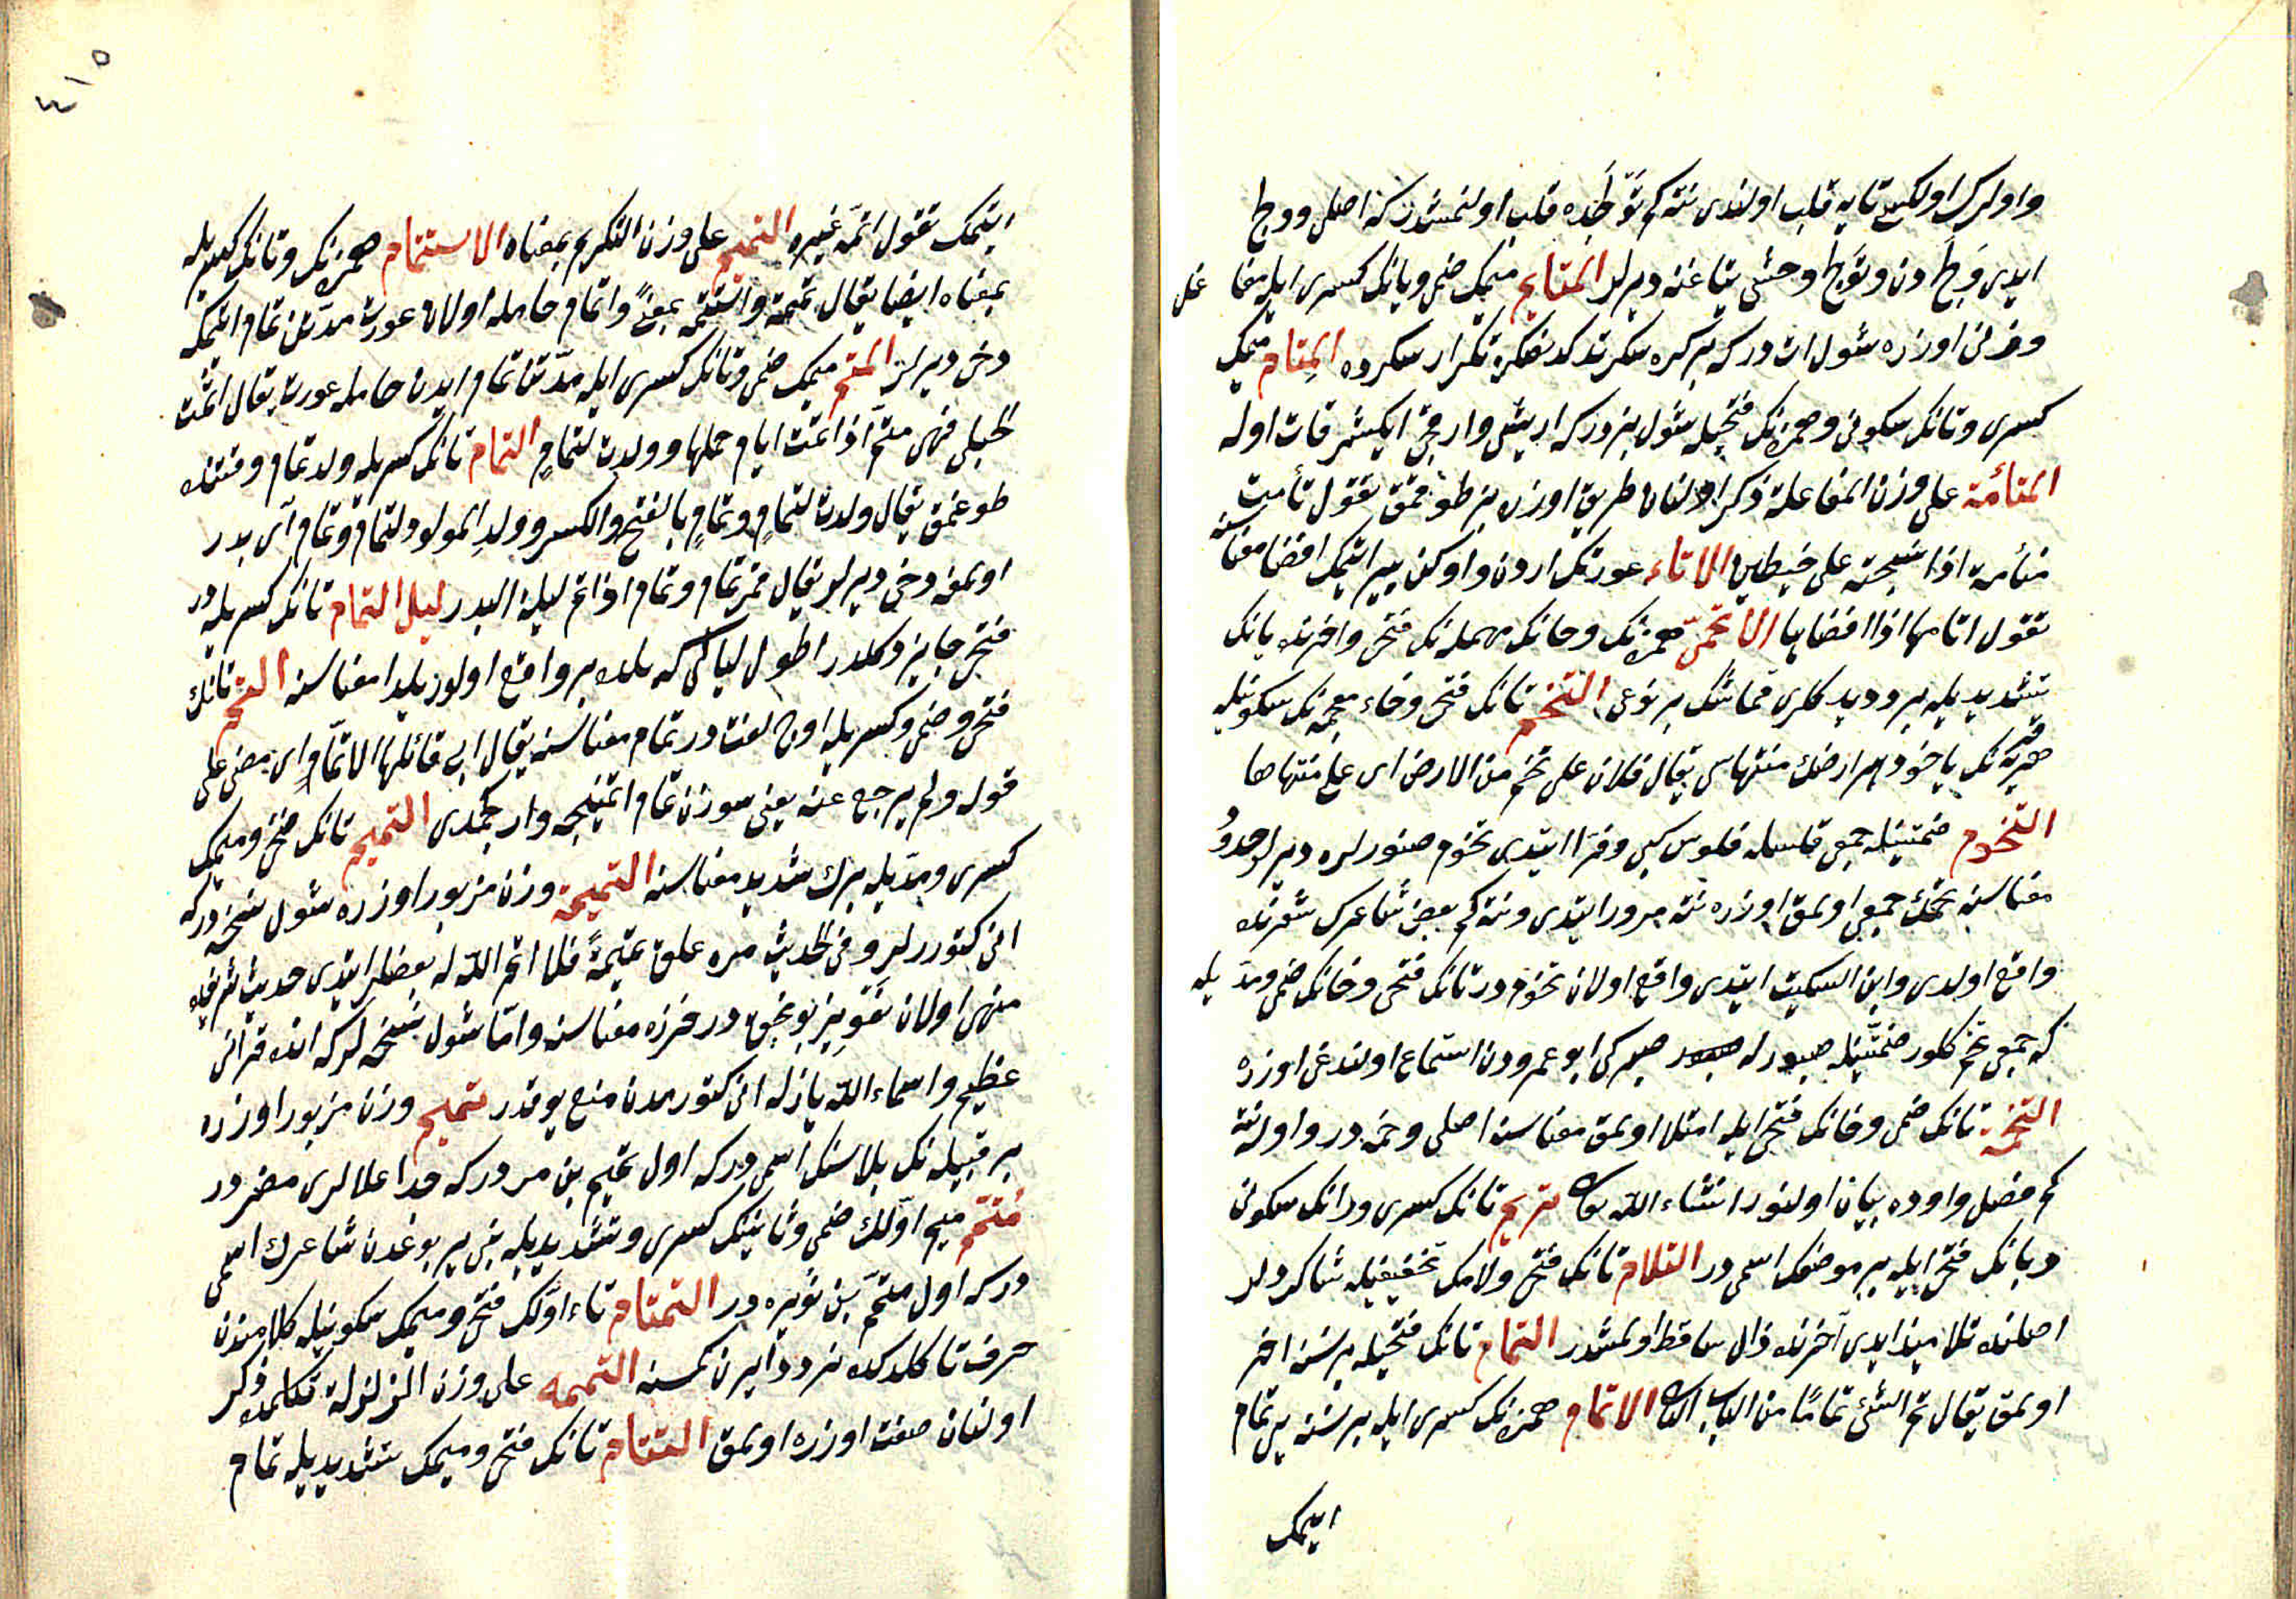 واولرك اولكى تايه قلب اولندى نته كم تولجده قلب اولنمشدركه اصلى وولج
ايدى ولج دن وتولج وحشى يتاغنه ديرلر المتايم ميمك ضمى ويانك كسرى ايله مفاعل
وزنى اوزره شول ات دركه بر كره سكرتدكدنصكره تكرار سكرده المتام ميمك
كسرى وتانك سكونى وهمزه نك فتحيله شول بزدركه اريشى وارغجى ايكيشر قات اوله
المتأمة على وزن المفاعلة ذكر اولنان طريق اوزره بز طوقمق تقول تأمت
متأمة اذا نسجته على خيطين الاتاء عورتك اردن واوكن بير اتمك افضا معناسنه
تقول اتامها اذا افضاها الاتحمى همزه نك وحانك مهمله نك فتحى واخرنده يانك
تشديديله برود يدكلرى قماشك بر نوعى التخم تانك فتحى وخاء معجمه نك سكونيله
هر قريه نك ياخود هر ارضك منتهاسى يقال فلان على تخم من الارض اى على منتهاها
التخوم ضمتينله جمعى فلسله فلوس كبى وفرا ايتدى تخوم صنورلره ديرلر حدود
معناسنه تخمك جمعى اولمق اوزره نته مرور ايتدى ونته كم بعض شاعرك شعرنده
واقع اولدى وابن السكيت ايتدى واقع اولان تخوم در تانك فتحى وخانك ضمى ومد يله
كه جمعى تخم كلور ضمتينله صبورله صبر كبى ابو عمرودن استماع اولندغى اوزره
التخمة تانك ضمى وخانك فتحى ايله امتلا اولمق معناسنه اصلى وخمه در واولنه
كم فصل واوده بيان اولنور انشاء الله تعالى تريم تانك كسرى ورانك سكونى
ويانك فتحى ايله بر موضعك اسمى در التلام تانك فتحى ولامك تخفيفيله شاكردلر
اصلنده تلاميذ ايدى آخرنده ذال ساقط اولمشدر التمام تانك فتحيله بر نسنه اخر
اولمق يقال تم الشئ تماما من الباب الثانى الاتمام همزه نك كسرى ايله بر نسنه يى تمام
ايتمك
٤١٥
ايتمك تقول اتمه غيره التتميم على وزن التكريم بمعناه الاستتمام همزه نك وتانك كسريله
بمعناه ايضا يقال تممه واستتمه بمعنى واتمام حامله اولان عورت مدتن تمام اتمكه
دخى ديرلر المتم ميمك ضمى وتانك كسرى ايله مدتن تمام ايدن حامله عورت يقال اتمت
الحبلى فهى متم اذا تمت ايام حملها وولدت لتمام التمام تانك كسريله ولد تمام وقتنده
طوغمق يقال ولدت لتمام وتمام بالفتح والكسر وولد المولود لتمام وتمام آى بدر
اولمغه دخى ديرلر يقال قمر تمام وتمام اذا تم ليلة البدر ليل التمام تانك كسريله در
فتحى جايز دكلدر اطول ليالى كه يلده بر واقع اولور يلدا معناسنه التم تانك
فتحى وضمى وكسريله اوچ لغت در تمام معناسنه يقال ابى قائلها الا تما اى مضى على
قوله ولم يرجع عنه يعنى سوزن تمام اتمينجه وارجعمدى التميم تانك فتحى وميمك
كسرى ومديله برك شديد معناسنه التميمة وزن مزبور اوزره شول نسخه دركه
انى كتوررلر وفى الحديث من علق تميمة فلا اتم الله له بعضلر ايتدى حديث شريفله
منهى اولان تعويذ بونجق در خرزه معناسنه واما شول نسخه لركه انده قرآن
عظيم واسماء الله يازله انى كتورمدن منع يوقدر تميم وزن مزبور اوزره
بر قبيله نك بلاسنك اسمى دركه اول تميم بن مر دركه جد اعلالرى مضر در
متمم ميم اولك ضمى وثانينك كسرى وتشديديله بنى يربوعدن شاعرك اسمى
دركه اول متمم بن نويره در التمتام تاء اولك فتحى وميمك سكونيله كلامنده
حرف تا كلدكده تردد ايدن كمسنه التمتمه على وزن الزلزلة تكلمده ذكر
اولنان صفت اوزره اولمق التتام تانك فتحى وميمك تشديديله تمام